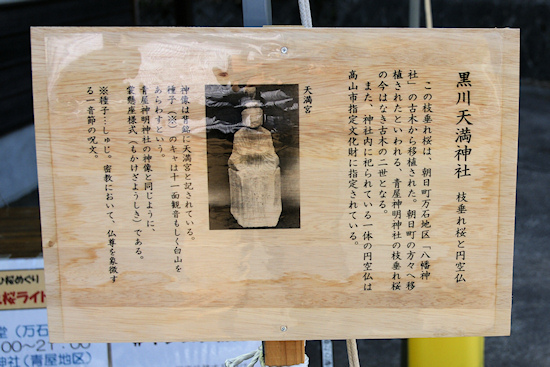 黒川天満神社　枝垂れ桜と円空仏
この枝垂れ桜は、朝日町万石地区「八幡神
社」の古木から移植された。朝日町の方々へ移
植されたといわれる、青屋神明神社の枝垂れ桜
の今はなき古木の二世となる。
また、神社内に祀られている一体の円空仏は
高山市指定文化財に指定されている。
天満宮
神像は背銘に天満宮と記されている。
種子（※）のキャは十一面観音もしく白山を
あらわすという。
青屋神明神社の神像と同じように、
裳懸座様式（もかけざようしき）である。
※種子…しゅじ。密教において、仏尊を象徴す
る一音節の呪文。
桜めぐり
桜ライト
堂（万石
00～21:00
神社（青屋地区）